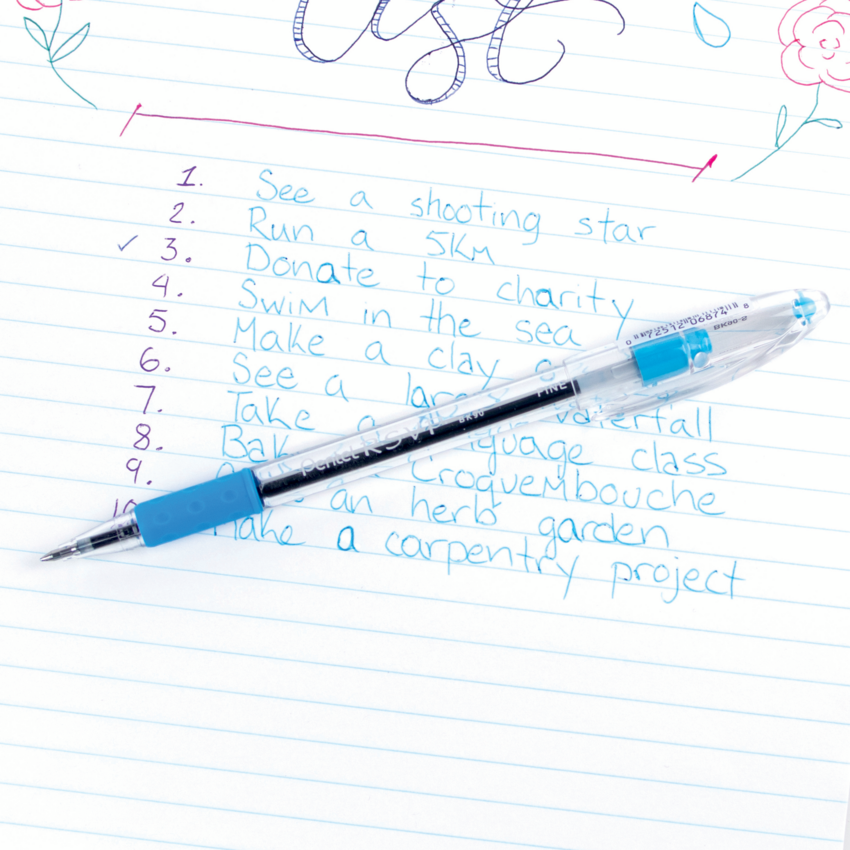 ist
1. See a shooting star
2. Run a 5KM
✓ 3. Donate to charity
4. Swim in the sea
5. Make a clay
6. See a large waterfall
7. Take a language class
8. Bake a Croquembouche
9. an herb garden
10. Make a carpentry project
0 72512 06874 8
BK90-2
FINE
BK90
Pentel R.S.V.P.